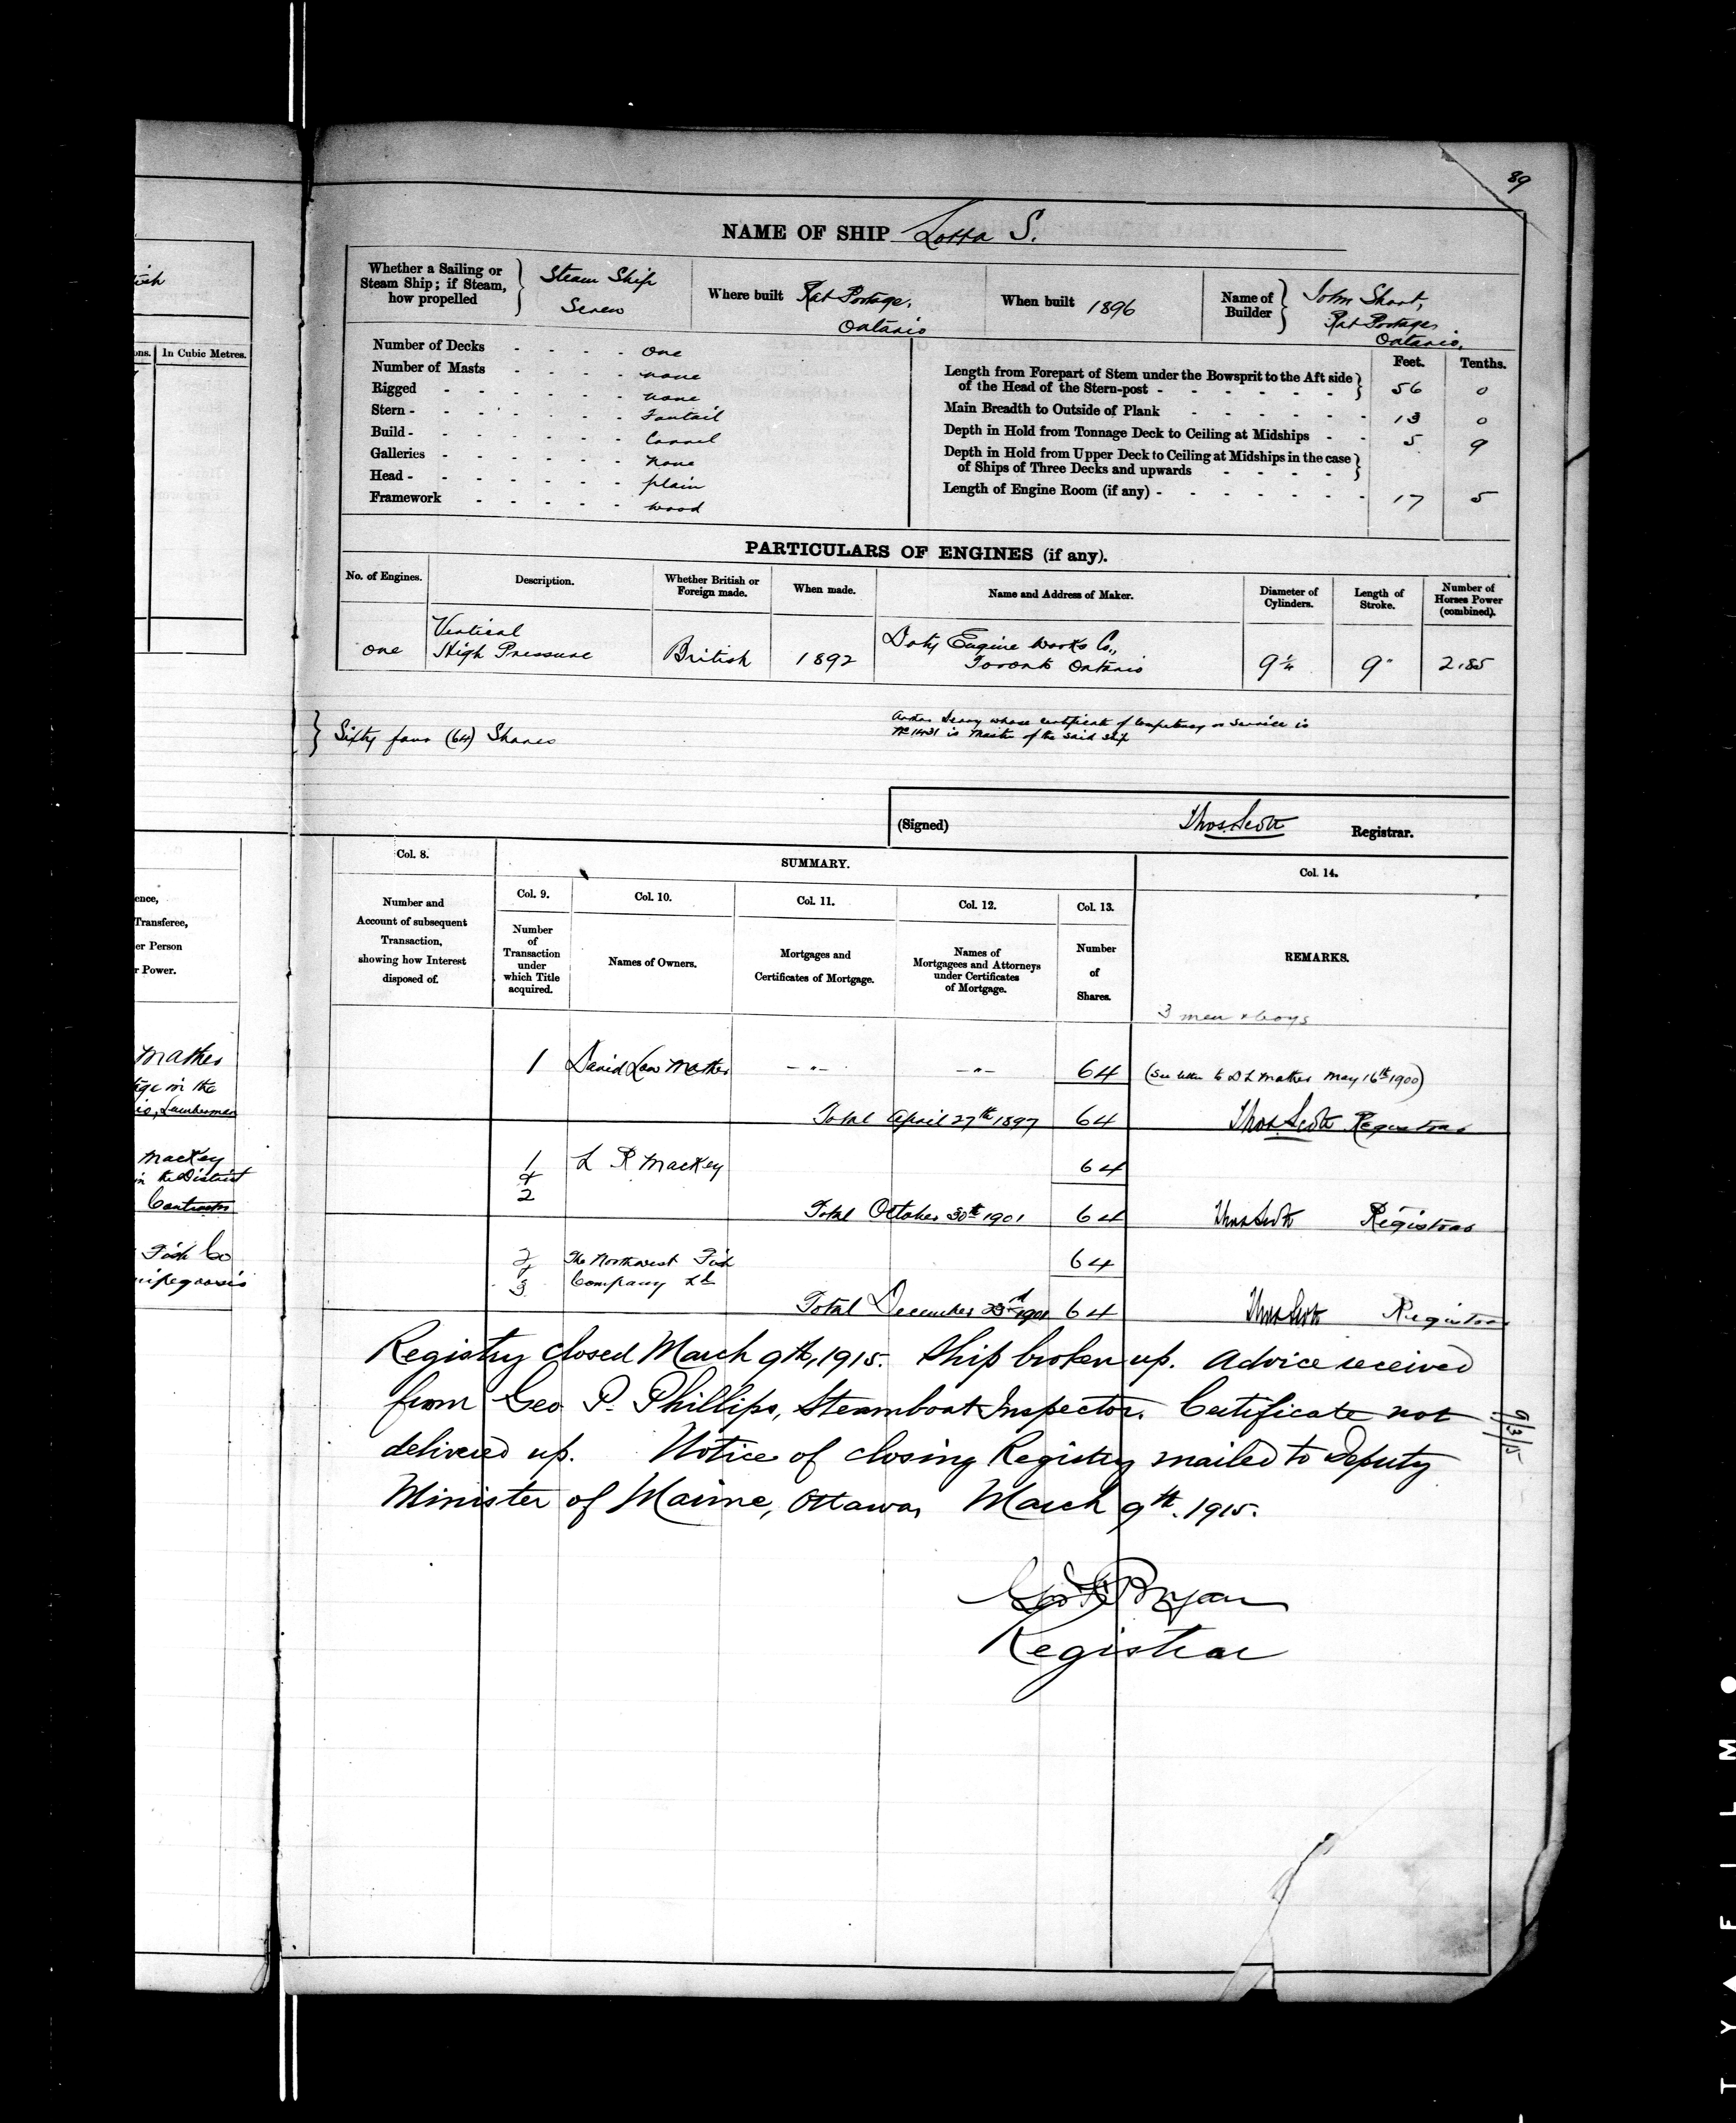 89
NAME OF SHIP Lotta S.
Whether a Sailing or Steam Ship; if Steam, how propelled } Steam Ship Screw
Where built Rat Portage, Ontario
When built 1896
Name of Builder } John Short, Rat Portage, Ontario.
Number of Decks - - - - one
Number of Masts - - - - none
Rigged - - - - - - none
Stern - - - - - - Fantail
Build - - - - - - Carvel
Galleries - - - - - - none
Head - - - - - - plain
Framework - - - - - wood
Feet. Tenths.
Length from Forepart of Stem under the Bowsprit to the Aft side
of the Head of the Stern-post - - - - - - } 56 0
Main Breadth to Outside of Plank - - - - - - 13 0
Depth in Hold from Tonnage Deck to Ceiling at Midships - - 5 9
Depth in Hold from Upper Deck to Ceiling at Midships in the case
of Ships of Three Decks and upwards - - - - }
Length of Engine Room (if any) - - - - - - - 17 5
PARTICULARS OF ENGINES (if any).
No. of Engines. Description. Whether British or Foreign made. When made. Name and Address of Maker. Diameter of Cylinders. Length of Stroke. Number of Horses Power (combined).
one Vertical High Pressure British 1892 Doty Engine Works Co., Toronto Ontario 9¼ 9" 2.85
} Sixty four (64) Shares
whose certificate of Competency or Service is
No 1431 is Master of the said ship
(Signed) Thos Scott Registrar.
Col. 8. SUMMARY. Col. 14.
Col. 9. Col. 10. Col. 11. Col. 12. Col. 13.
Number and Account of subsequent Transaction, showing how Interest disposed of.
Number of Transaction under which Title acquired.
Names of Owners.
Mortgages and Certificates of Mortgage.
Names of Mortgagees and Attorneys under Certificates of Mortgage.
Number of Shares.
REMARKS.
3 men & boys
1 David Low Mather -"- -"- 64 (See letter to D L Mather May 16th 1900)
Total April 27th 1897 64 Thos Scott Registrar
1 & 2 L R Mackey 64
Total October 30th 1901 64 Thos Scott Registrar
2 & 3 The Northwest Fish Company Ld 64
Total December 23rd 1901 64 Thos Scott Registrar
Registry closed March 9th, 1915. Ship broken up. Advice received
from Geo P. Phillips, Steamboat Inspector. Certificate not
delivered up. Notice of closing Registry mailed to Deputy
Minister of Marine, Ottawa, March 9th. 1915.
9/3/15
Bryan
Registrar
In Cubic Metres.
ons.
ence,
Transferee,
er Person
r Power.
Mather
tage in the
io, Lumberman
Mackey
in the District
Contractor
Fish Co
nipegoosis